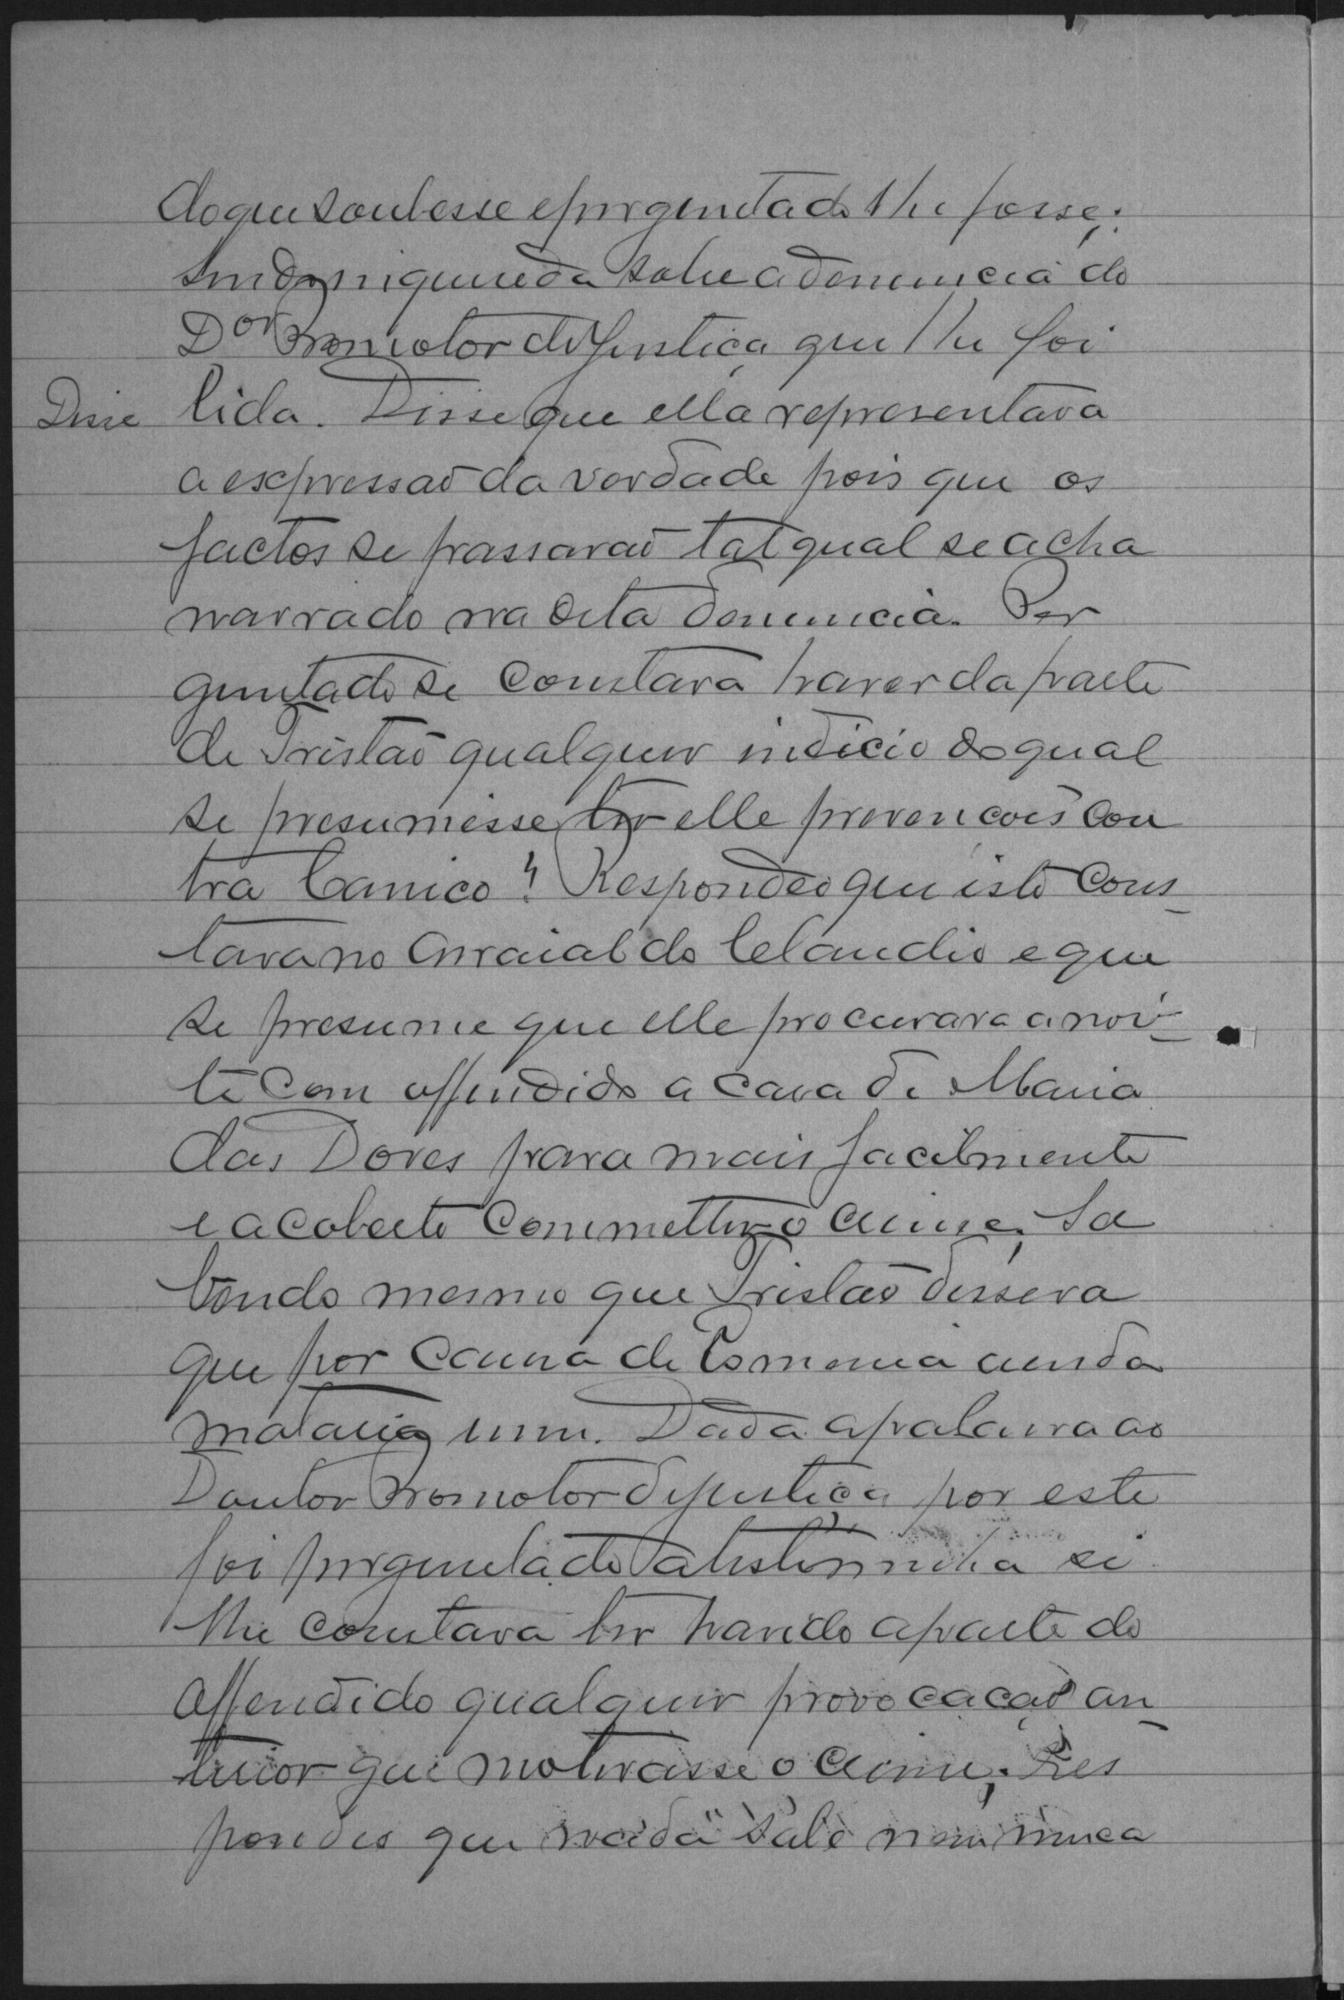 do que soubesse e perguntado lhe fosse;
sendo inquerida sobre a denuncia do
Dor Promotor de Justiça que lhe foi
Disse lida. Disse que ella representava
a expressaõ da verdade pois que os
factos se passaraõ tal qual se acha
narrado na dita denuncia. Per
guntado se constava haver da parte
de Tristaõ qualquer indicio do qual
se presumisse ter elle prevencoẽs con
tra Canico? Respondeo que isto cons_
tava no Arraial do Claudio e que
se presume que elle procurara a noi_
te com offendido a casa de Maria
das Dores para mais facilmente
e a coberto commetter o crime; Sa
bendo mesmo que Tristaõ dissera
que por causa de Tomenia ainda
mataria um. Dada a palavra ao
Doutor Promotor de Justiça por este
foi perguntado a testeminha si
lhe constava ter havido a parte do
offendido qualquer provocaçaõ an_
terior que motivasse o crime; Res
pondeo que nada sabe nem nunca